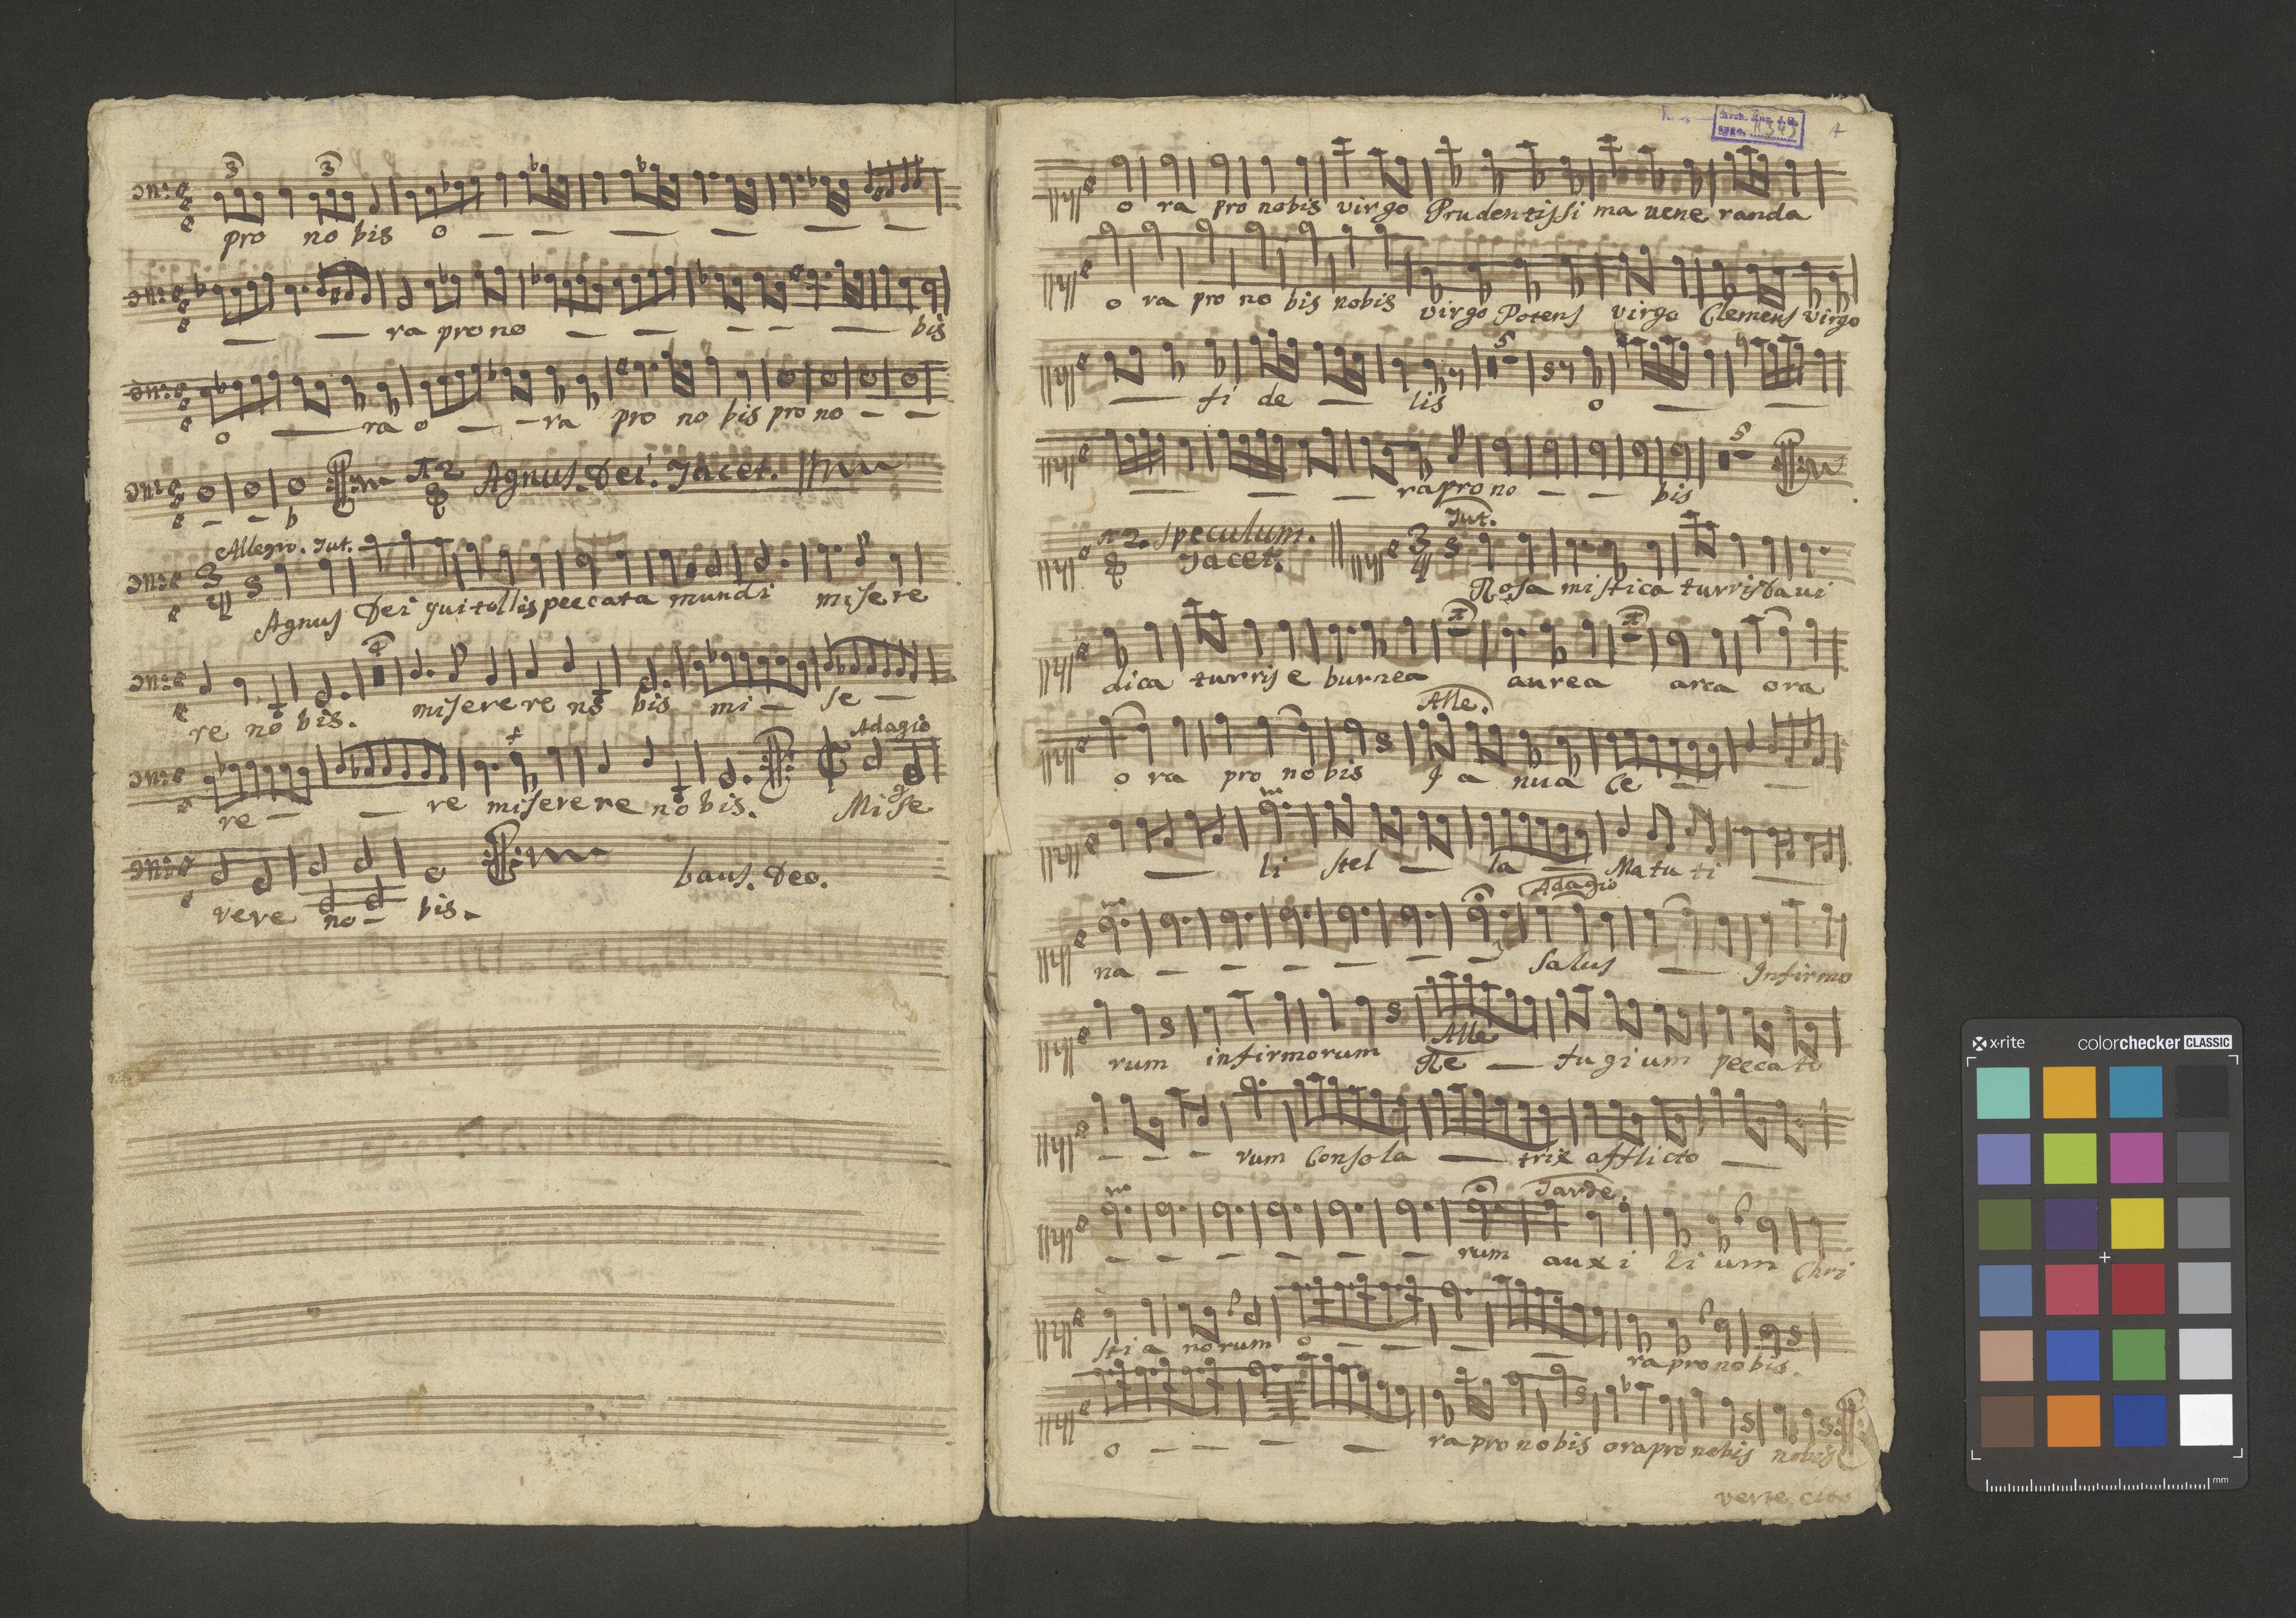 3 3
pro no bis o
ra pro no bis
o ra o ra pro no bis pro no
π2 Agnus. Dei. Jacet.
Allegro. Tut.
Agnus Dei qui tollis peccata mundi misere
4
re no bis. miserere no bis mi se
Adagio
re re miserere no bis. Mise
rere no bis.
Laus. Deo.
4
o ra pro nobis virgo Prudentissi ma uene randa
o ra pro no bis nobis virgo Potens virgo Clemens virgo
5
fi de lis o
5
ra pro no bis
π2. Speculum. Tut.
Jacet.
Rosa mistica turris Daui
dica turris e burnea aurea arca ora
Alle.
o ra pro no bis J a nua Ce
li stel la Matu ti
Adagio
na Salus Infirmo
rum infirmorum Re fugium peccato
Alle
rum Consola trix afflicto
Tarde.
rum auxi li um Chri
sti a norum o ra pro no bis.
o ra pro no bis ora pro nobis nobis
verte cito
x-rite colorchecker CLASSIC
mm